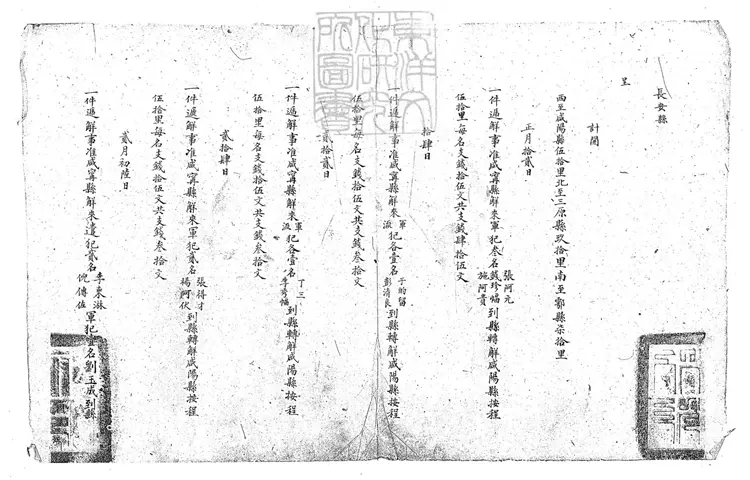 長安縣
呈
計開
西至咸陽縣伍拾里北至三原縣玖拾里南至鄠縣柒拾里
正月拾貳日
一件遞解事准咸寧縣解來軍犯叁名張阿元錢珍幅施阿貴到縣轉解咸陽縣按程
伍拾里每名支錢拾伍文共支錢肆拾伍文
拾肆日
一件遞解事准咸寧縣解來軍流犯各壹名于的留彭清良到縣轉解咸陽縣按程
伍拾里每名支錢拾伍文共支錢叁拾文
貳拾貳日
一件遞解事准咸寧縣解來軍流犯各壹名丁三李秀幅到縣轉解咸陽縣按程
伍拾里每名支錢拾伍文共支錢叁拾文
貳拾肆日
一件遞解事准咸寧縣解來軍犯貳名張得才楊阿伏到縣轉解咸陽縣按程
伍拾里每名支錢拾伍文共支錢叁拾文
貳月初陸日
一件遞解事准咸寧縣解來遣犯貳名李東淋倪傳位軍犯壹名劉玉成到縣
東洋文化研究所圖書